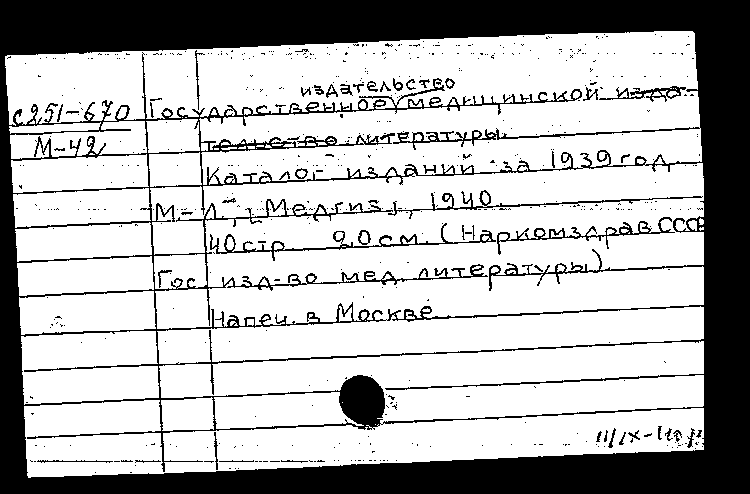 издательство
с251-670 Государственное медицинской изда-
М-42 тельство литературы.
Каталог изданий за 1939 год
М-Л, [Медгиз], 1940.
40 стр 20 см. (Наркомздрав СССР
Гос. изд-во мед. литературы).
Напеч. в Москве